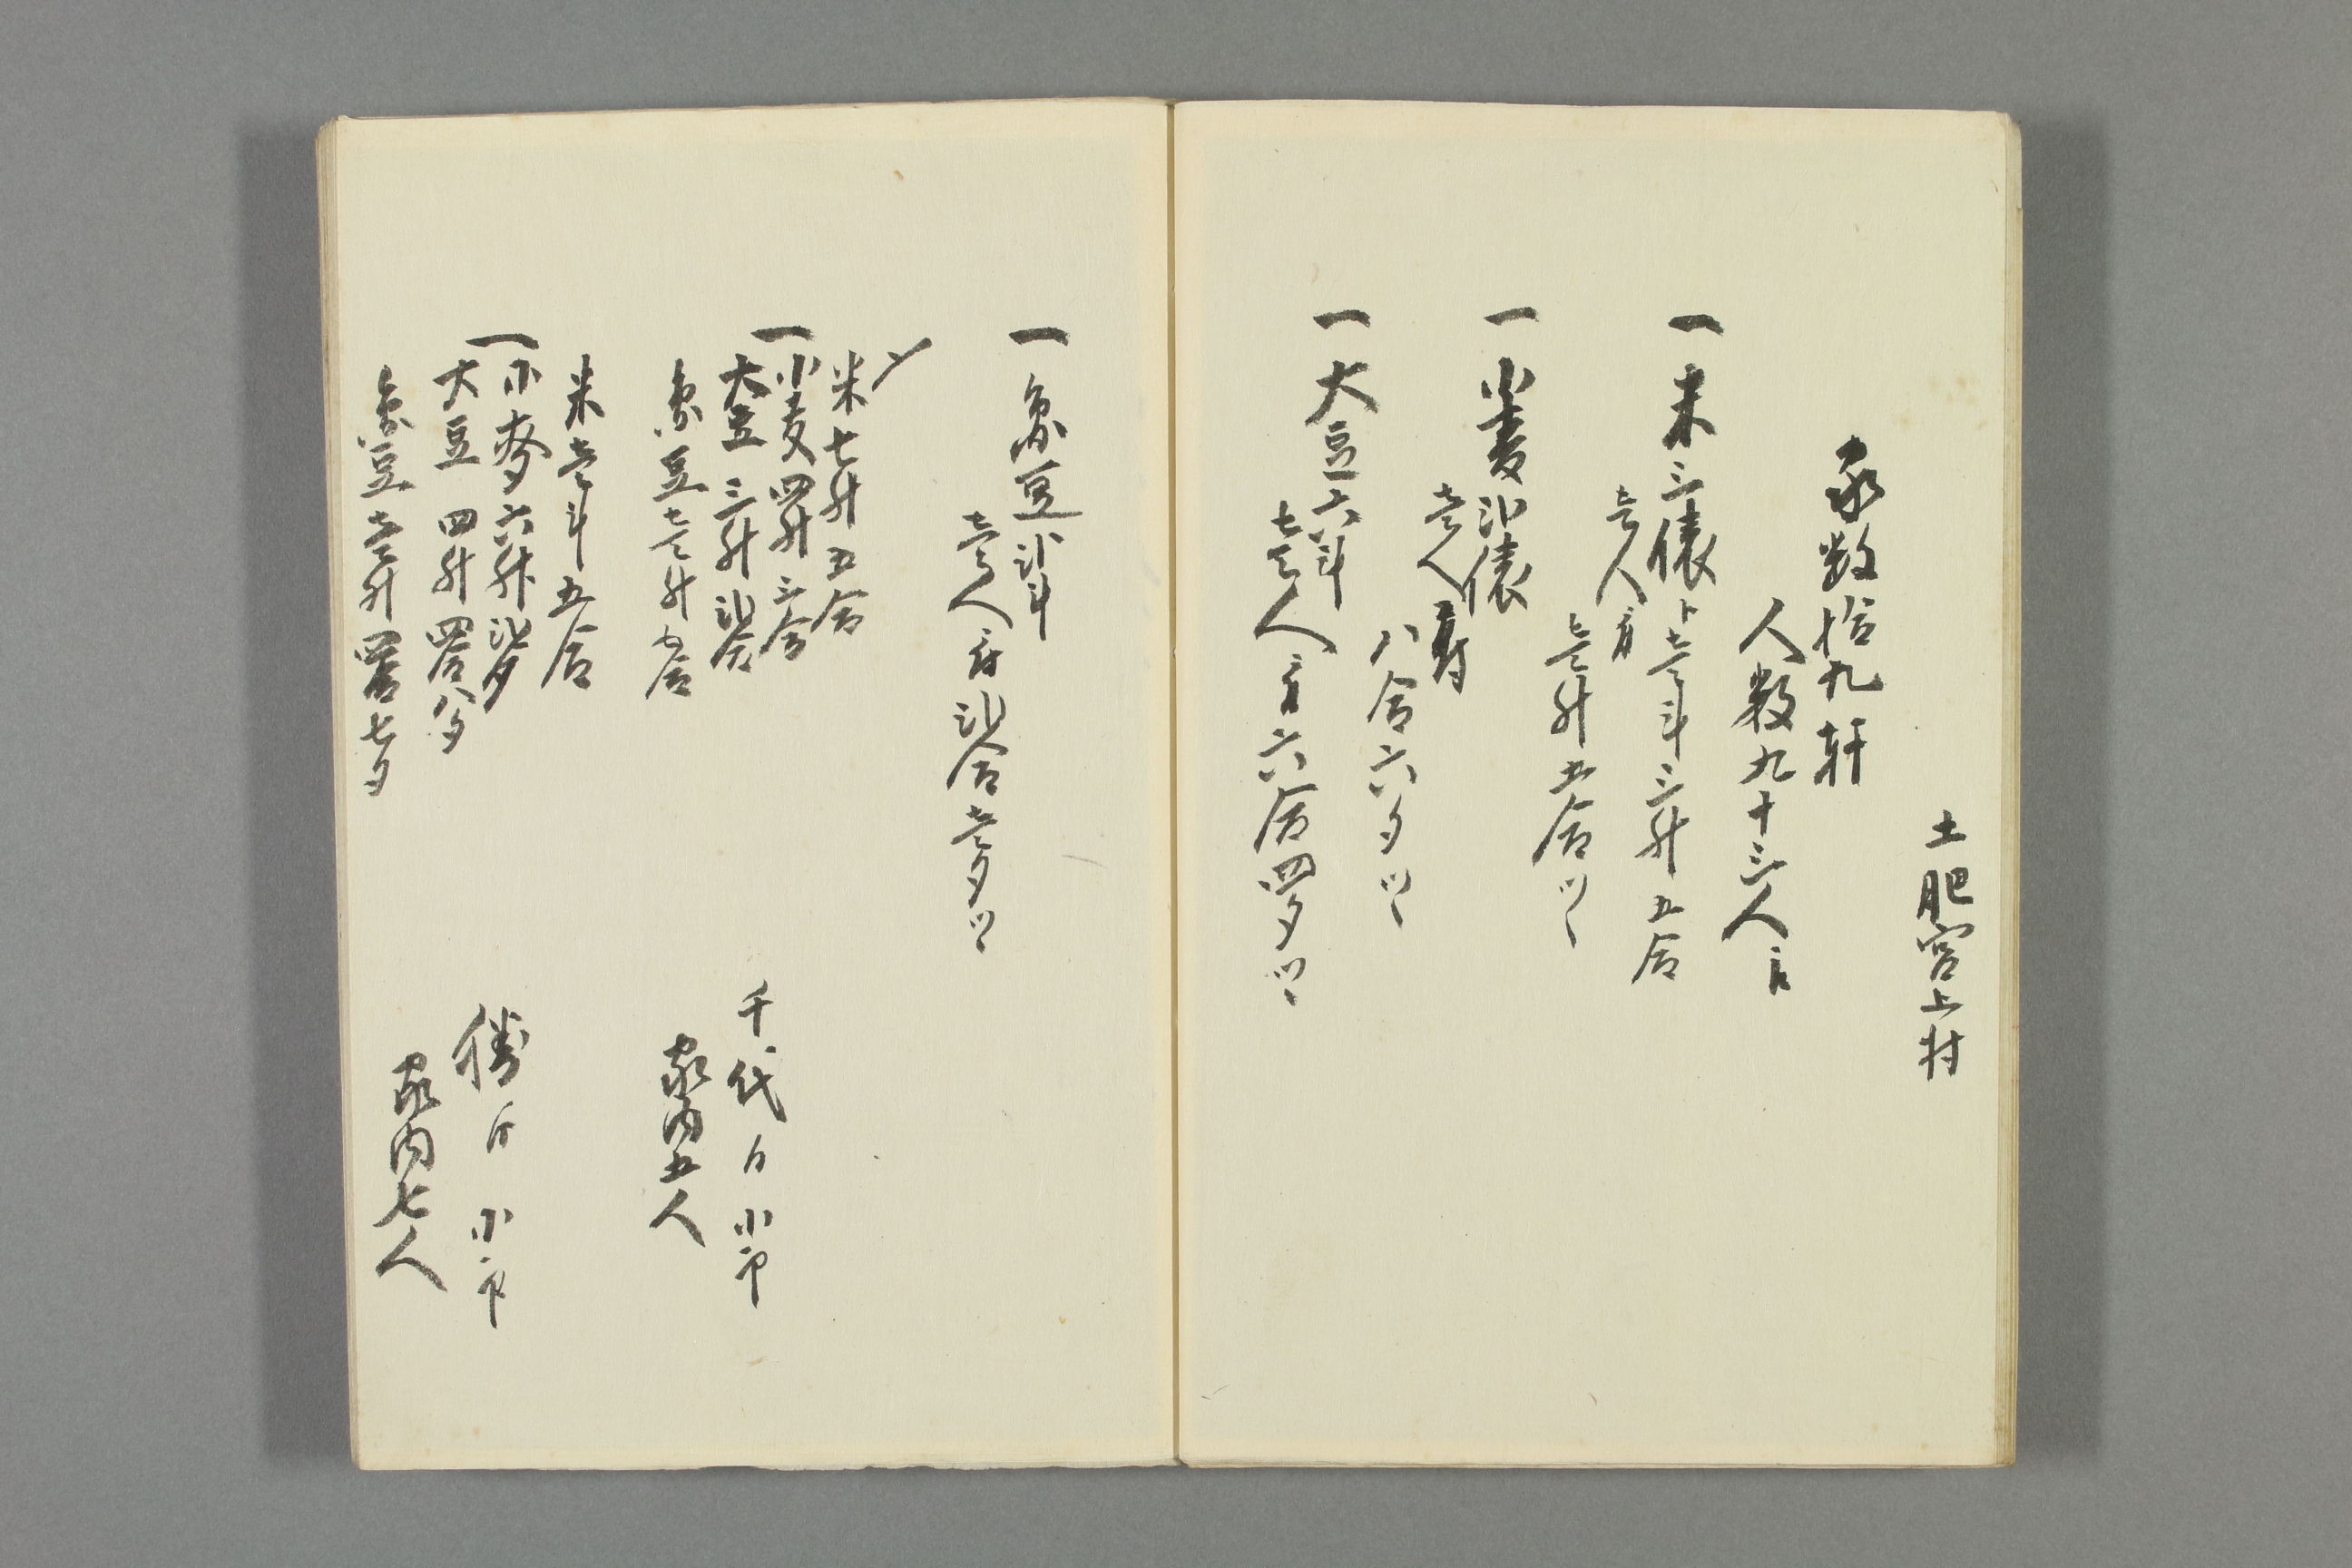 土肥宮上村
家数拾九軒
人数九十三人
一 米三俵ト壱斗三升五合
壱人ニ付
壱升五合ツヽ
一 小麦弐俵
壱人ニ付
八合六夕ツヽ
一 大豆六斗
壱人ニ付六合四夕ツヽ
一 豆弐斗
壱人ニ付弐合壱夕ツヽ
米七升五合
一 小麦四升三合
大豆三升弐合
豆壱升
千代
家内五人
米壱斗五合
一 小麦六升弐夕
大豆四升四合八夕
豆壱升四合七夕
勝
家内七人